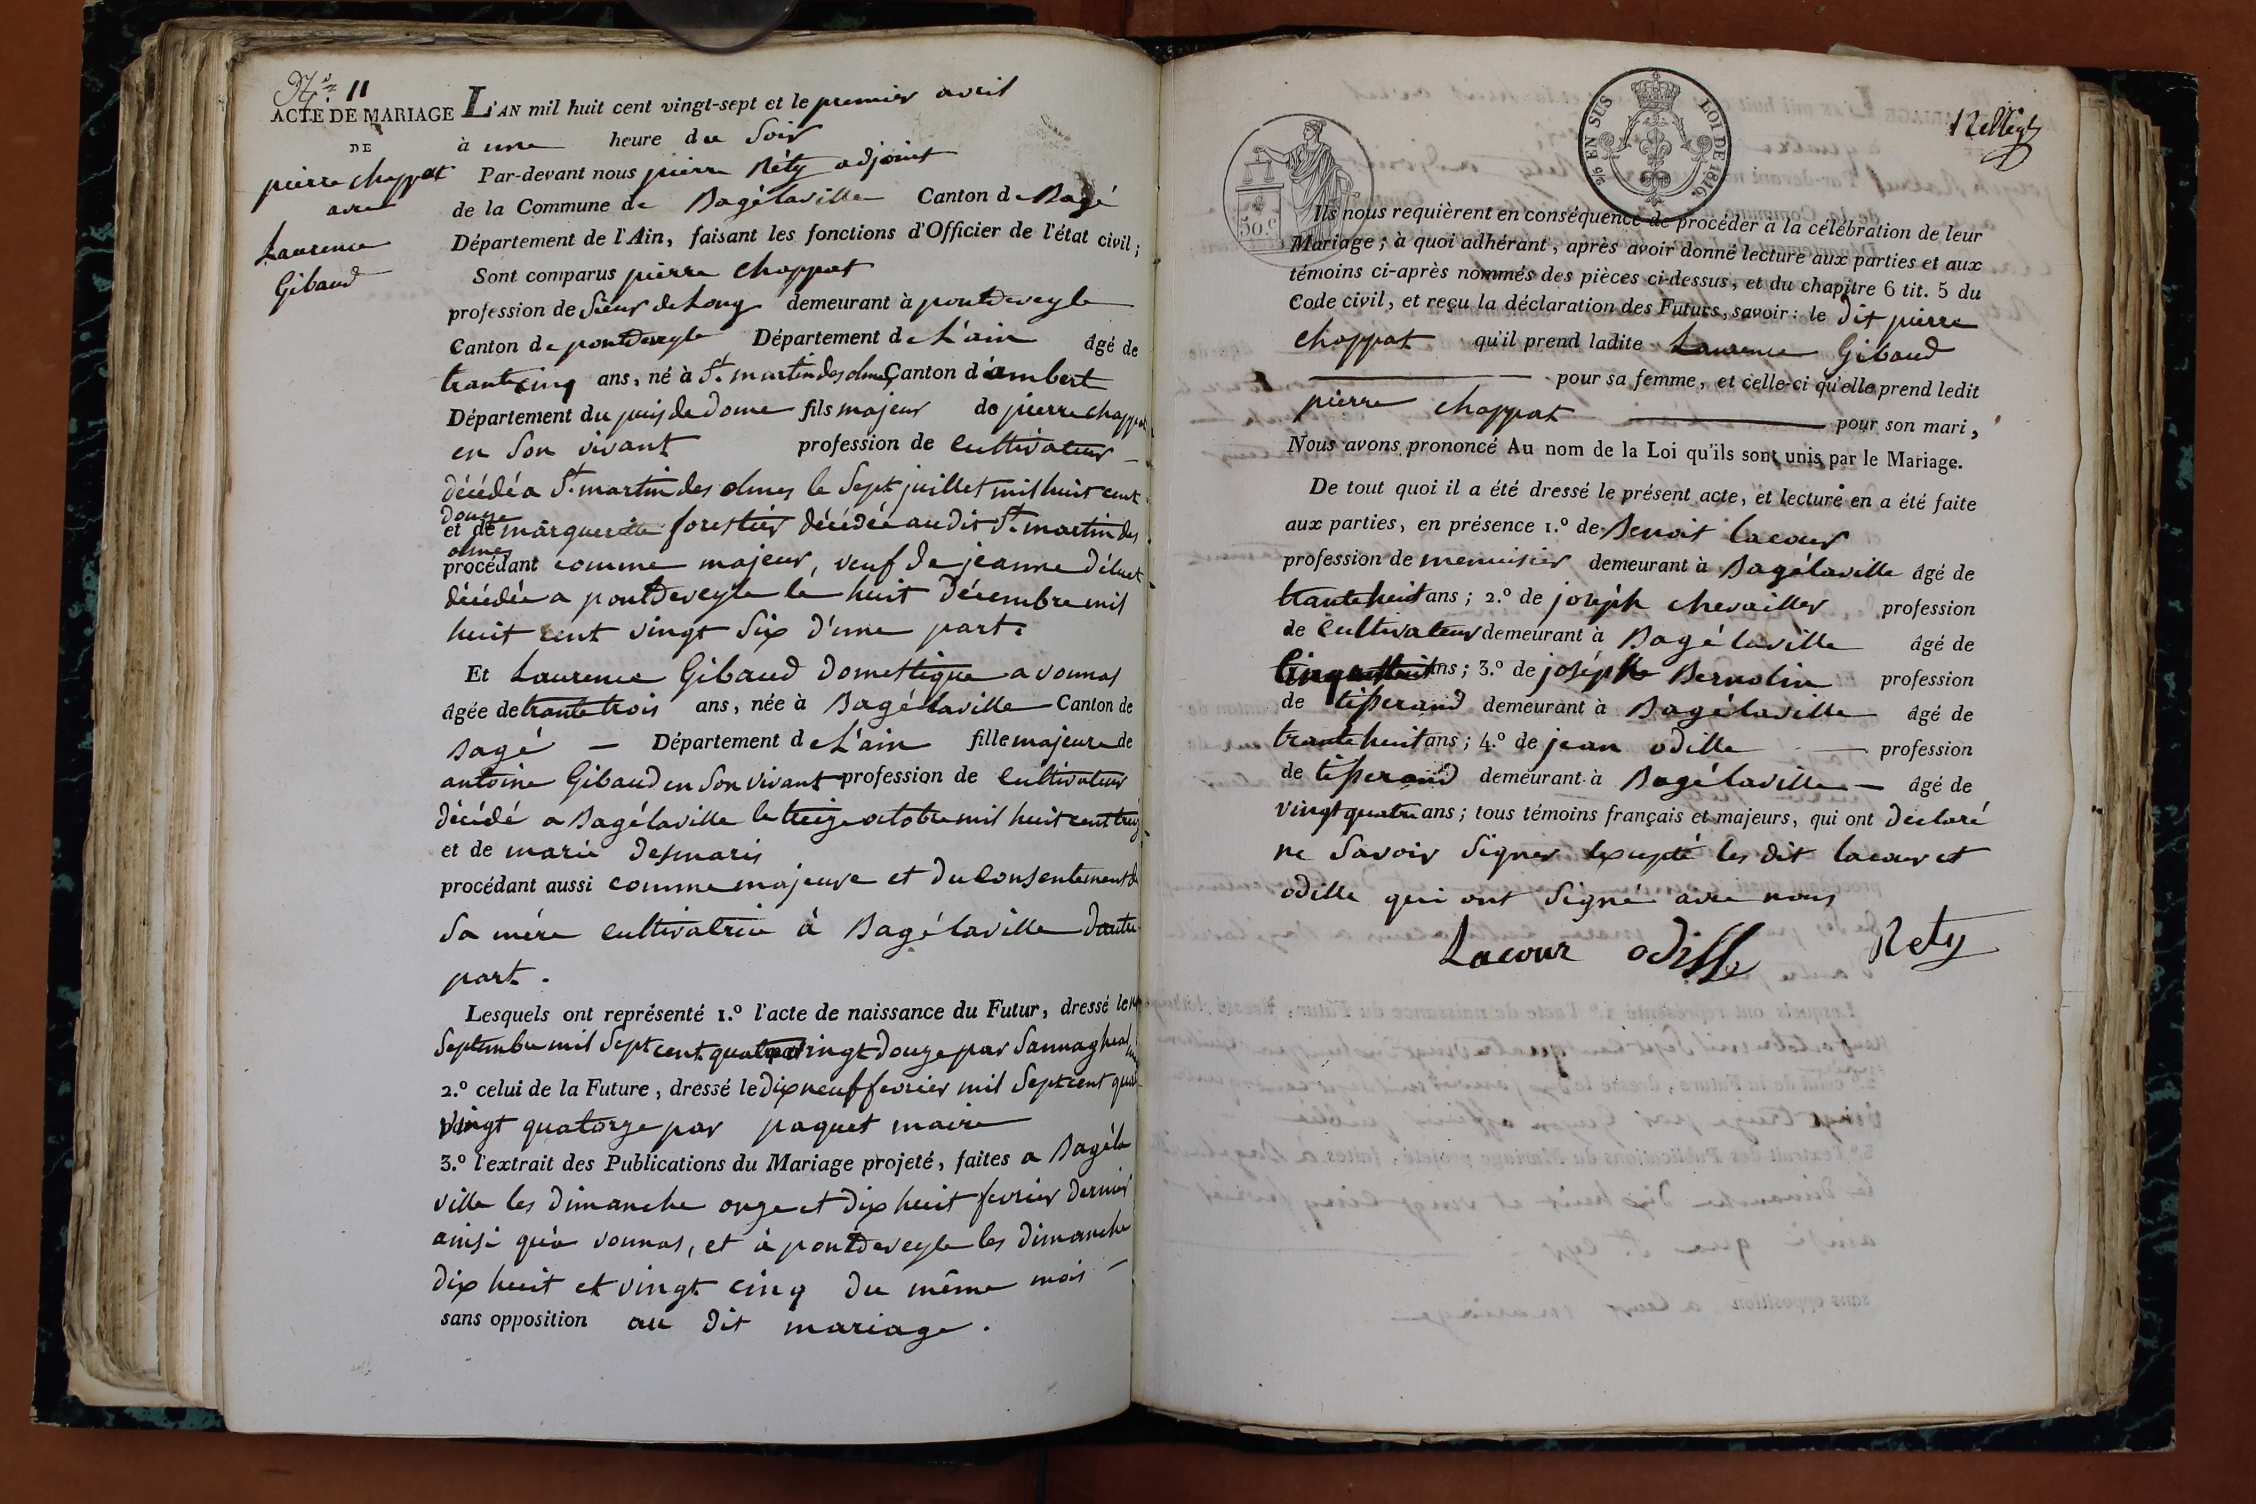 N.º 11
ACTE DE MARIAGE
DE
pierre chappat
avec
Laurence
Gibaud
L'AN mil huit cent vingt-sept et le premier avril
à une heure du Soir
Par-devant nous pierre Réty adjoint
de la Commune de Bagélaville Canton de Bagé
Département de l'Ain, faisant les fonctions d'Officier de l'état civil;
Sont comparus pierre Chappat
profession de Sieur de Long demeurant à pontdeveyle
Canton de pontdeveyle Département de L'ain âgé de
trante cinq ans, né à St. martin des olmes Canton d'ambert
Département du puis de dome fils majeur de pierre chappat
en Son vivant profession de Cultivateur
décédé a St. martin des olmes le Sept juillet mil huit cent
douze
et de marguerite forestier décédée au dit St. martin des
olmes
procédant comme majeur, veuf de jeanne
décédée a pontdeveyle le huit Décembre mil
huit cent vingt Six d'une part.
Et Laurence Gibaud Domestique a vonnas
âgée de trante trois ans, née à Bagélaville Canton de
Bagé — Département de L'ain fille majeure de
antoine Gibaud en Son vivant profession de Cultivateur
décédé a Bagélaville le treize octobre mil huit cent treiz
et de marie Desmaris
procédant aussi comme majeure et du Consentement de
Sa mère Cultivatrice à Bagélaville Dautre
part.
Lesquels ont représenté 1.º l'acte de naissance du Futur, dressé le
Septembre mil Sept cent quatrevingt Douze par
2.º celui de la Future, dressé le Dix neuf fevrier mil Sept cent quat
vingt quatorze par paquet maire
3.º l'extrait des Publications du Mariage projeté, faites a Bagéla
ville les dimanche onze et Dix huit fevrier Dernier
ainsi qu'à vonnas, et à pontdeveyle les dimanche
Dix huit et vingt cinq du même mois —
sans opposition au Dit mariage.
EN SUS
LOI DE 1816.
50 C
Ils nous requièrent en conséquence de procéder à la célébration de leur
Mariage; à quoi adhérant, après avoir donné lecture aux parties et aux
témoins ci-après nommés des pièces ci-dessus, et du chapitre 6 tit. 5 du
Code civil, et reçu la déclaration des Futurs, savoir: le Dit pierre
Chappat qu'il prend ladite Laurence Gibaud
pour sa femme, et celle-ci qu'elle prend ledit
pierre Chappat pour son mari,
Nous avons prononcé Au nom de la Loi qu'ils sont unis par le Mariage.
De tout quoi il a été dressé le présent acte, et lecture en a été faite
aux parties, en présence 1.º de Benoit Lacour
profession de menuisier demeurant à Bagélaville âgé de
trante huit ans; 2.º de joseph chevailler profession
de Cultivateur demeurant à Bagélaville âgé de
ans; 3.º de joséph Bernolin profession
de tisserand demeurant à Bagélaville âgé de
trante huit ans; 4.º de jean odille profession
de tisserand demeurant à Bagélaville — âgé de
vingt quatre ans; tous témoins français et majeurs, qui ont Déclaré
ne Savoir Signer Excepté les dit lacour et
odille qui ont Signé avec nous
Lacour odille Rety